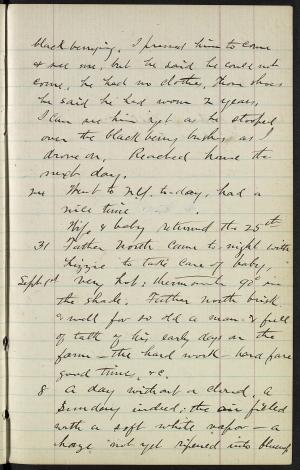 black berrying. I pressed him to come
& see me, but he said he could not
come, he had no clothes, those shoes
he said he had worn 2 years,
I can see him yet as he stooped
over the black berry bushes as I
drove on. Reached home the
next day.
24 Went to N.Y. to-day, had a
nice time
Wife & baby returned the 25th
31 Father North came to-night with
Lizzie to take care of baby,
Sept 1st Very hot; thermometer 90° in
the shade. Father North brisk
& well for so old a man & full
of talk of his early days on the
farm — the hard work — hard fare
good time, &c.
8 A day without a cloud, a
Sunday indeed; the air filled
with a soft white vapor — a
haze not yet ripened into